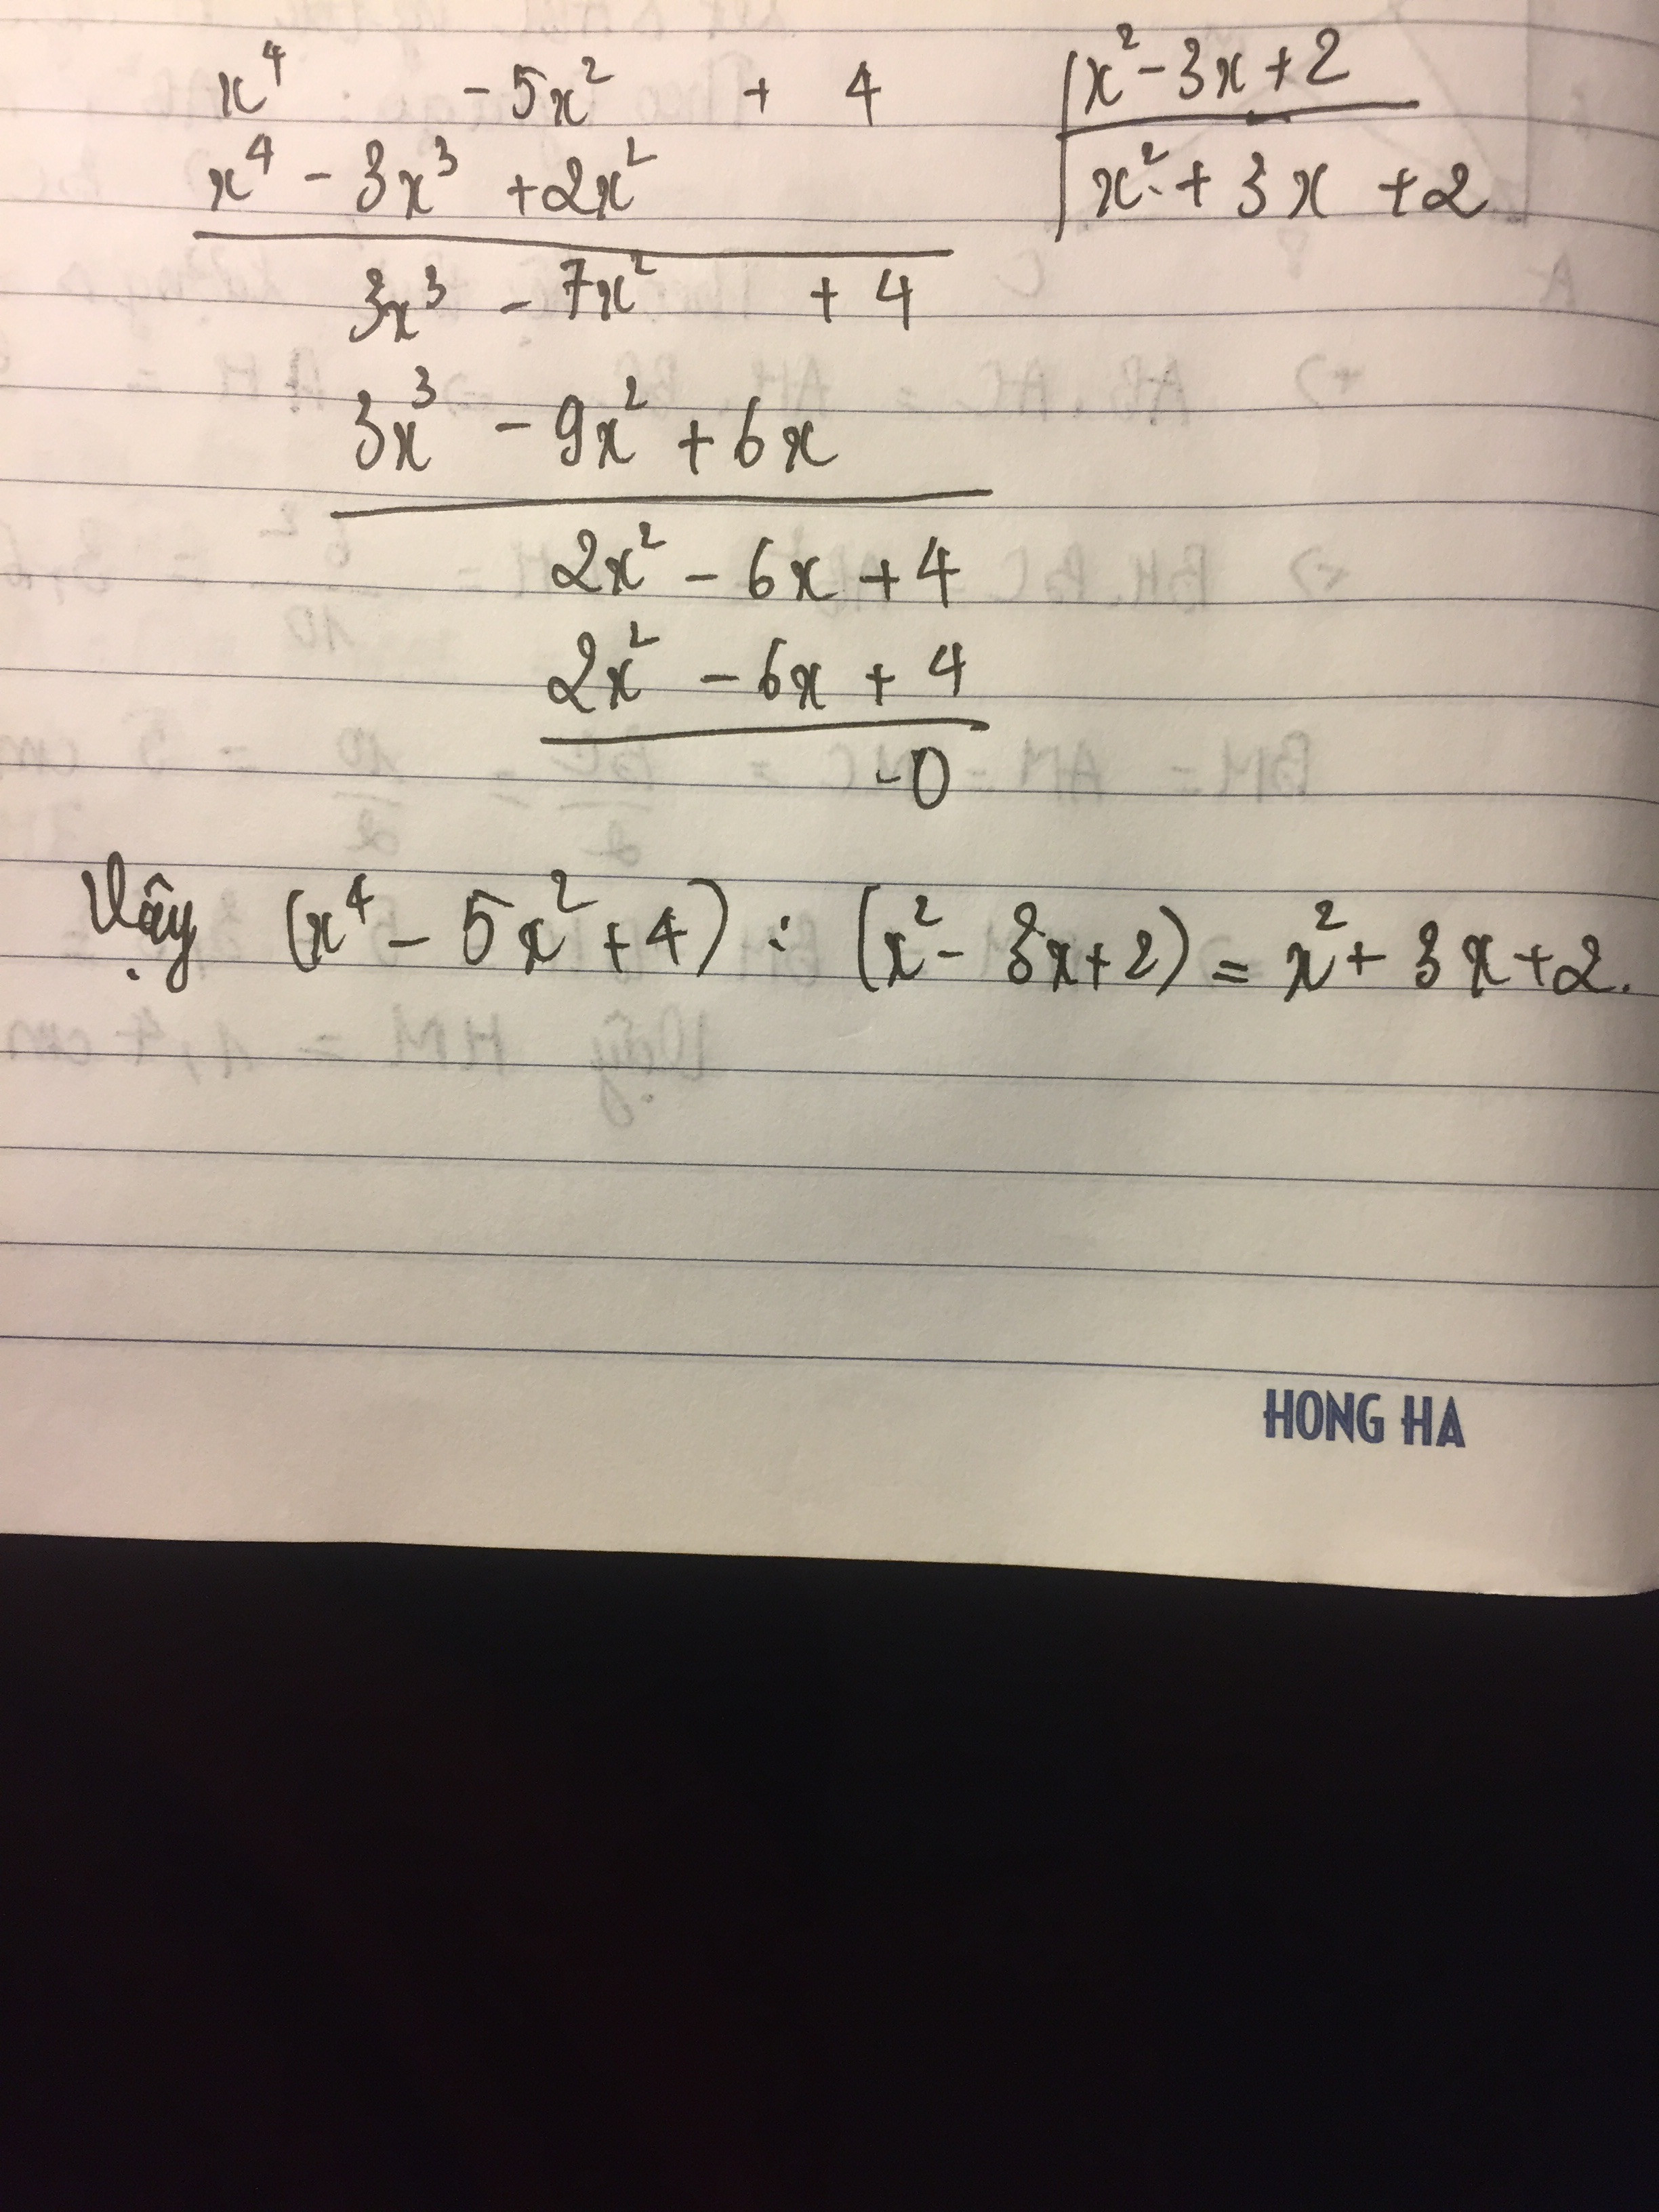 x⁴ - 5x² + 4 | x² - 3x + 2
x⁴ - 3x³ + 2x² | x² + 3x + 2
3x³ - 7x² + 4
3x³ - 9x² + 6x
2x² - 6x + 4
2x² - 6x + 4
-0
Vậy (x⁴ - 5x² + 4) : (x² - 3x + 2) = x² + 3x + 2.
HONG HA